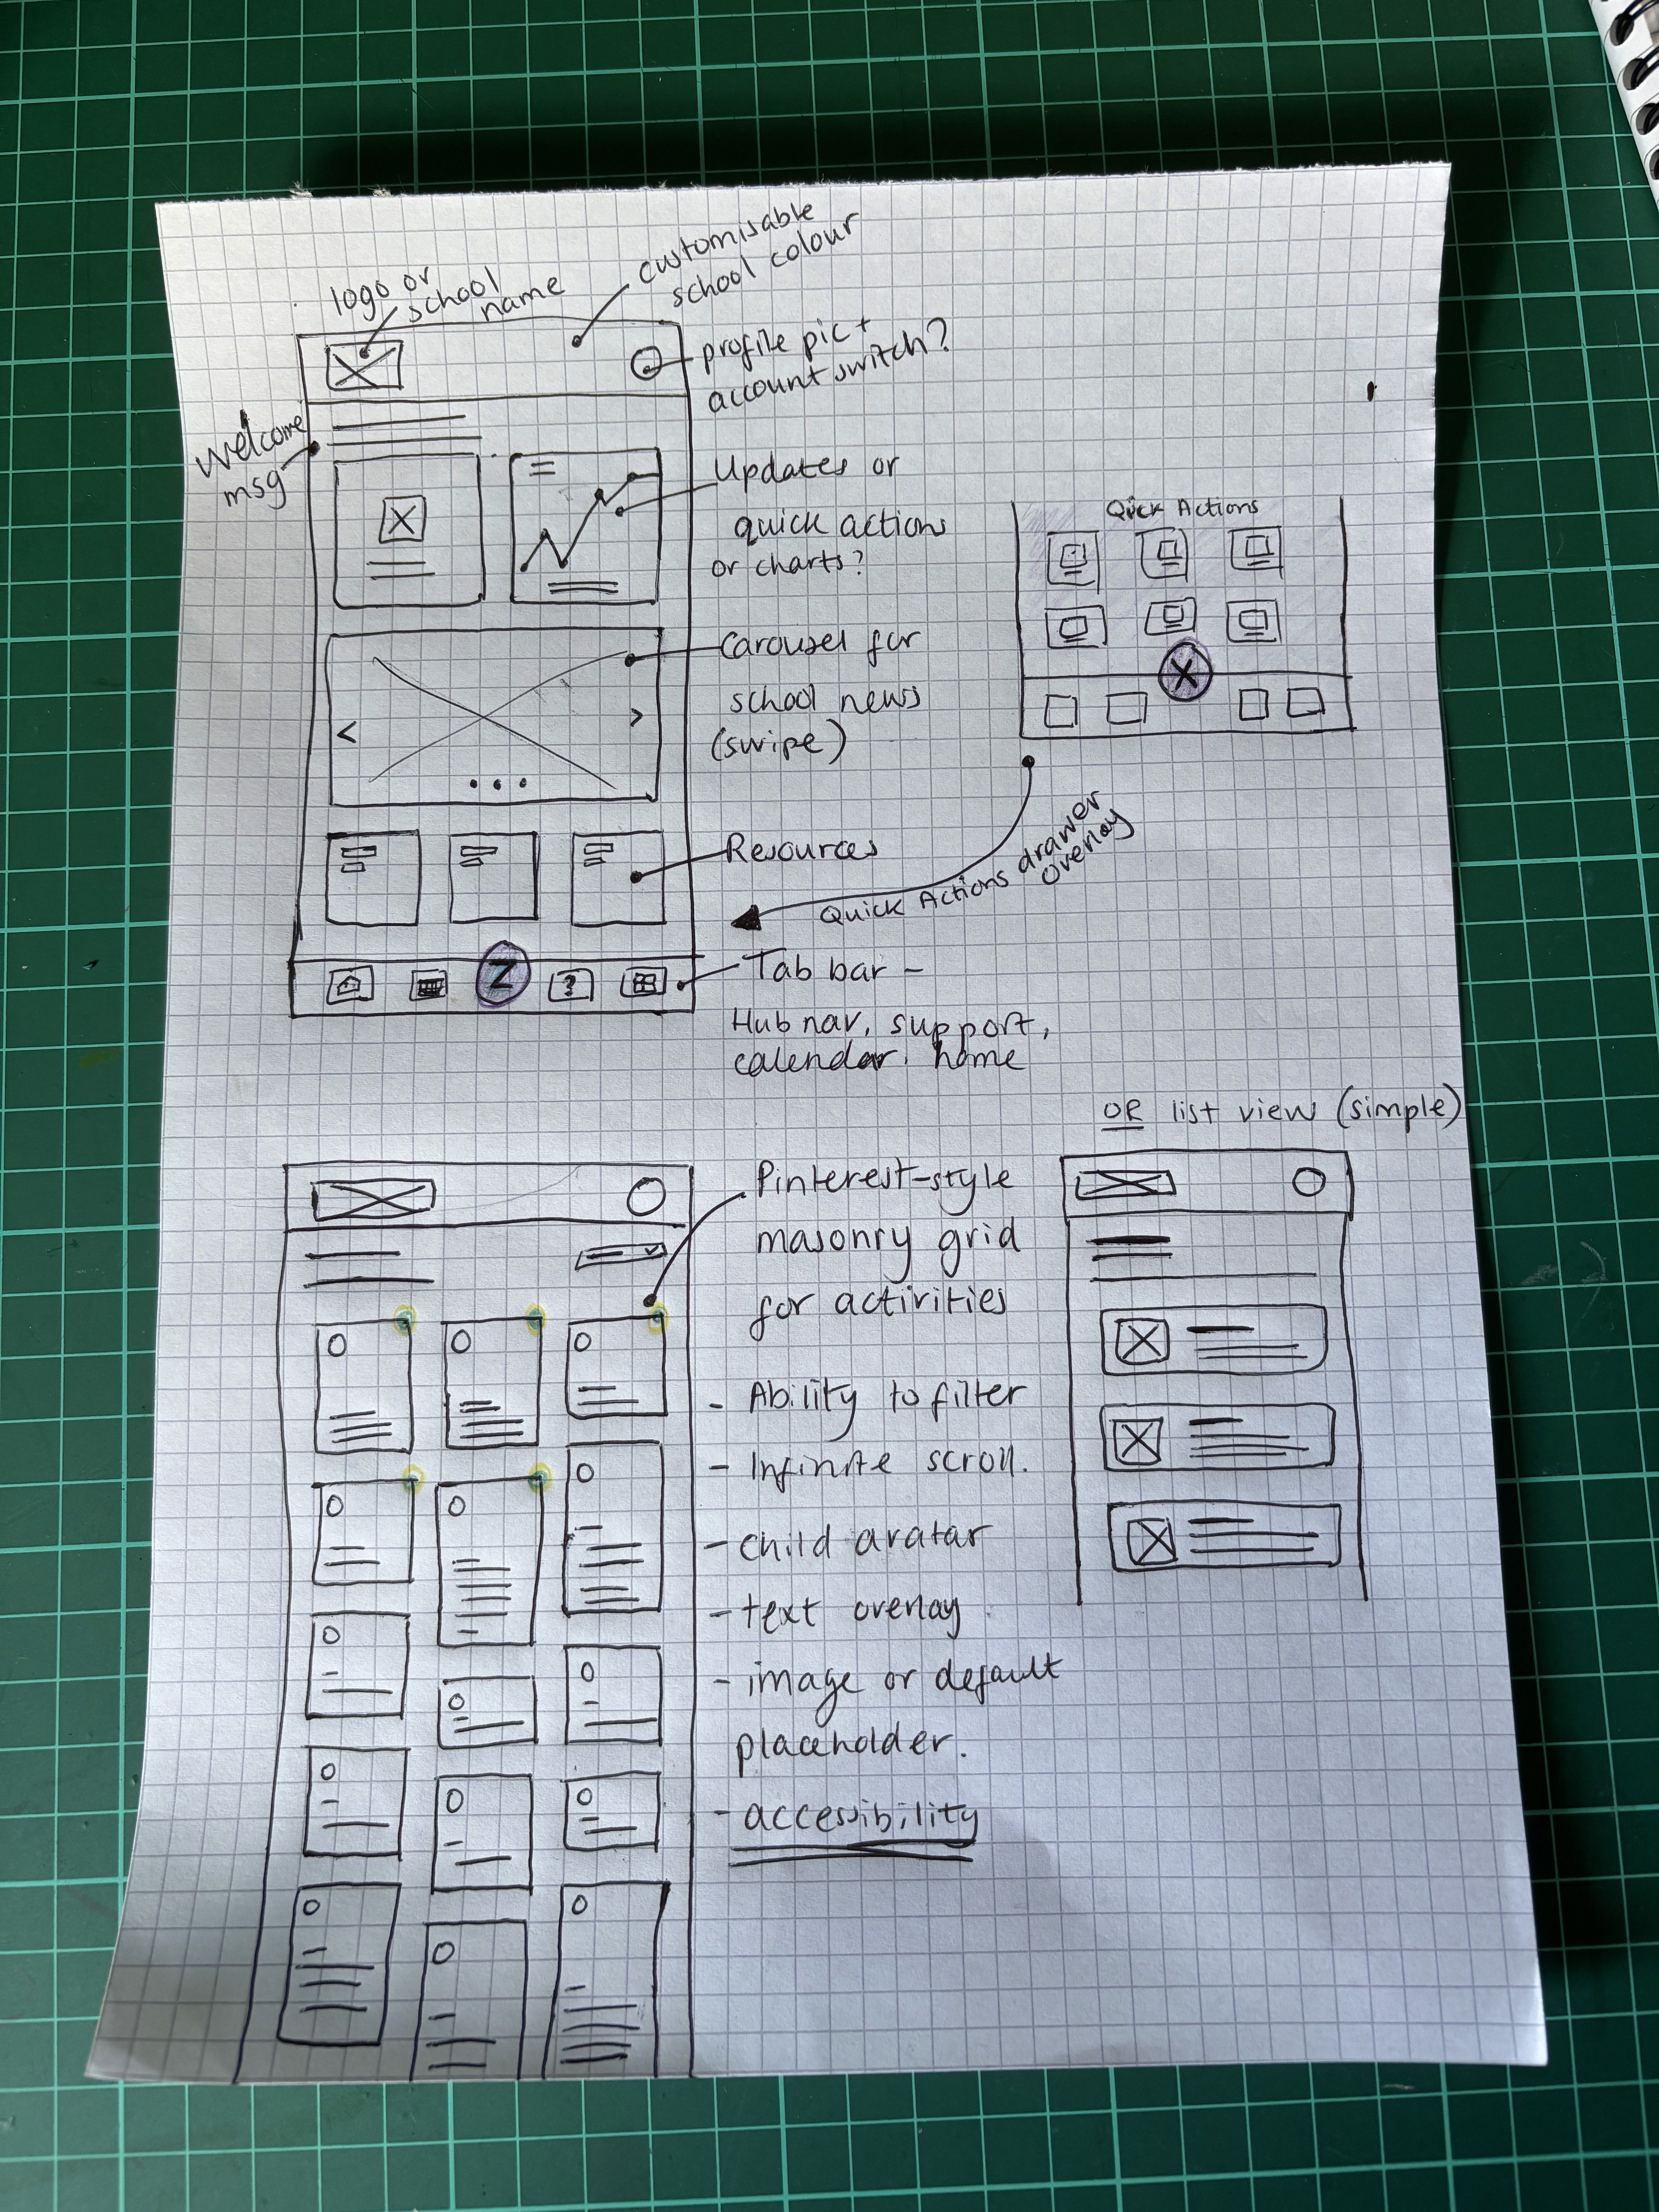 logo or
school
name
customisable
school colour
profile pic +
account switch?
Welcome
msg
Updates or
quick actions
or charts?
Quick Actions
X
Carousel for
school news
(swipe)
<
>
Resources
Quick Actions drawer
overlay
Z
?
Tab bar -
Hub nav, support,
calendar, home
OR list view (simple)
Pinterest-style
masonry grid
for activities
- Ability to filter
- Infinite scroll.
- child avatar
- text overlay
- image or default
placeholder.
- accessibility